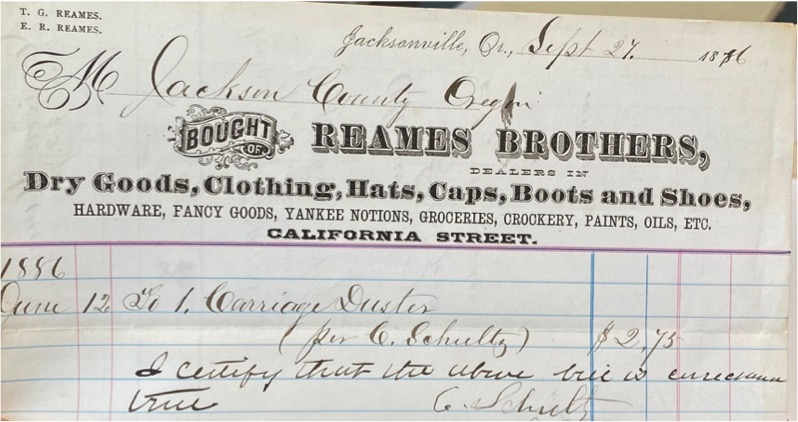 T. G. REAMES.
E. R. REAMES.
Jacksonville, Or., Sept 27. 1886
M Jackson County Oregon
BOUGHT OF REAMES BROTHERS,
DEALERS IN
Dry Goods, Clothing, Hats, Caps, Boots and Shoes,
HARDWARE, FANCY GOODS, YANKEE NOTIONS, GROCERIES, CROCKERY, PAINTS, OILS, ETC.
CALIFORNIA STREET.
1886
June 12 To 1. Carriage Duster
(per C. Schultz) $2,75
I certify that the above bill is correct and
true C. Schultz